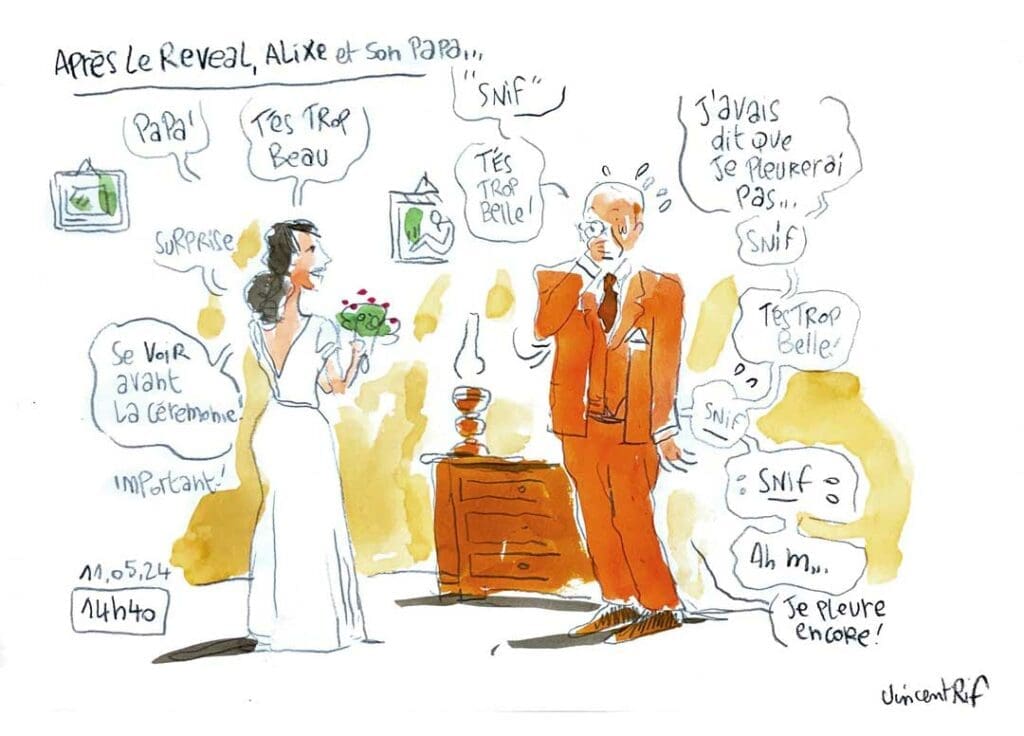 APRÈS LE REVEAL, ALIXE et SON PAPA...
PAPA!
T'ES TROP
BEAU
"SNIF"
TÉS
TROP
BELLE!
J'AVAIS
dit QUE
JE PLEURERAI
PAS...
SNIF
TÉS TROP
BELLE!
SNIF
SNIF
Ah m...
Je pleure
encore!
SURPRISE
Se VOIR
avant
LA CÉREMONIE!
IMPORTANT!
11.05.24
14h40
VincentRif